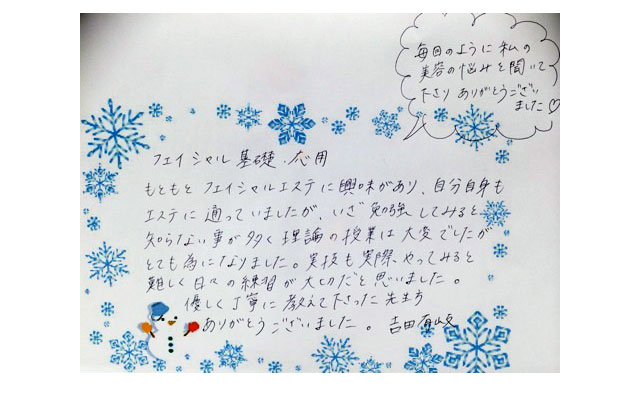 毎回のように私の
美容の悩みを聞いて
下さりありがとうござい
ました♡
フェイシャル基礎・応用
もともとフェイシャルエステに興味があり、自分自身も
エステに通っていましたが、いざ勉強してみると
知らない事が多く理論の授業は大変でしたが
とても為になりました。実技も実際やってみると
難しく日々の練習が大切だと思いました。
優しく丁寧に教えて下さった先生方
ありがとうございました。 吉田有岐